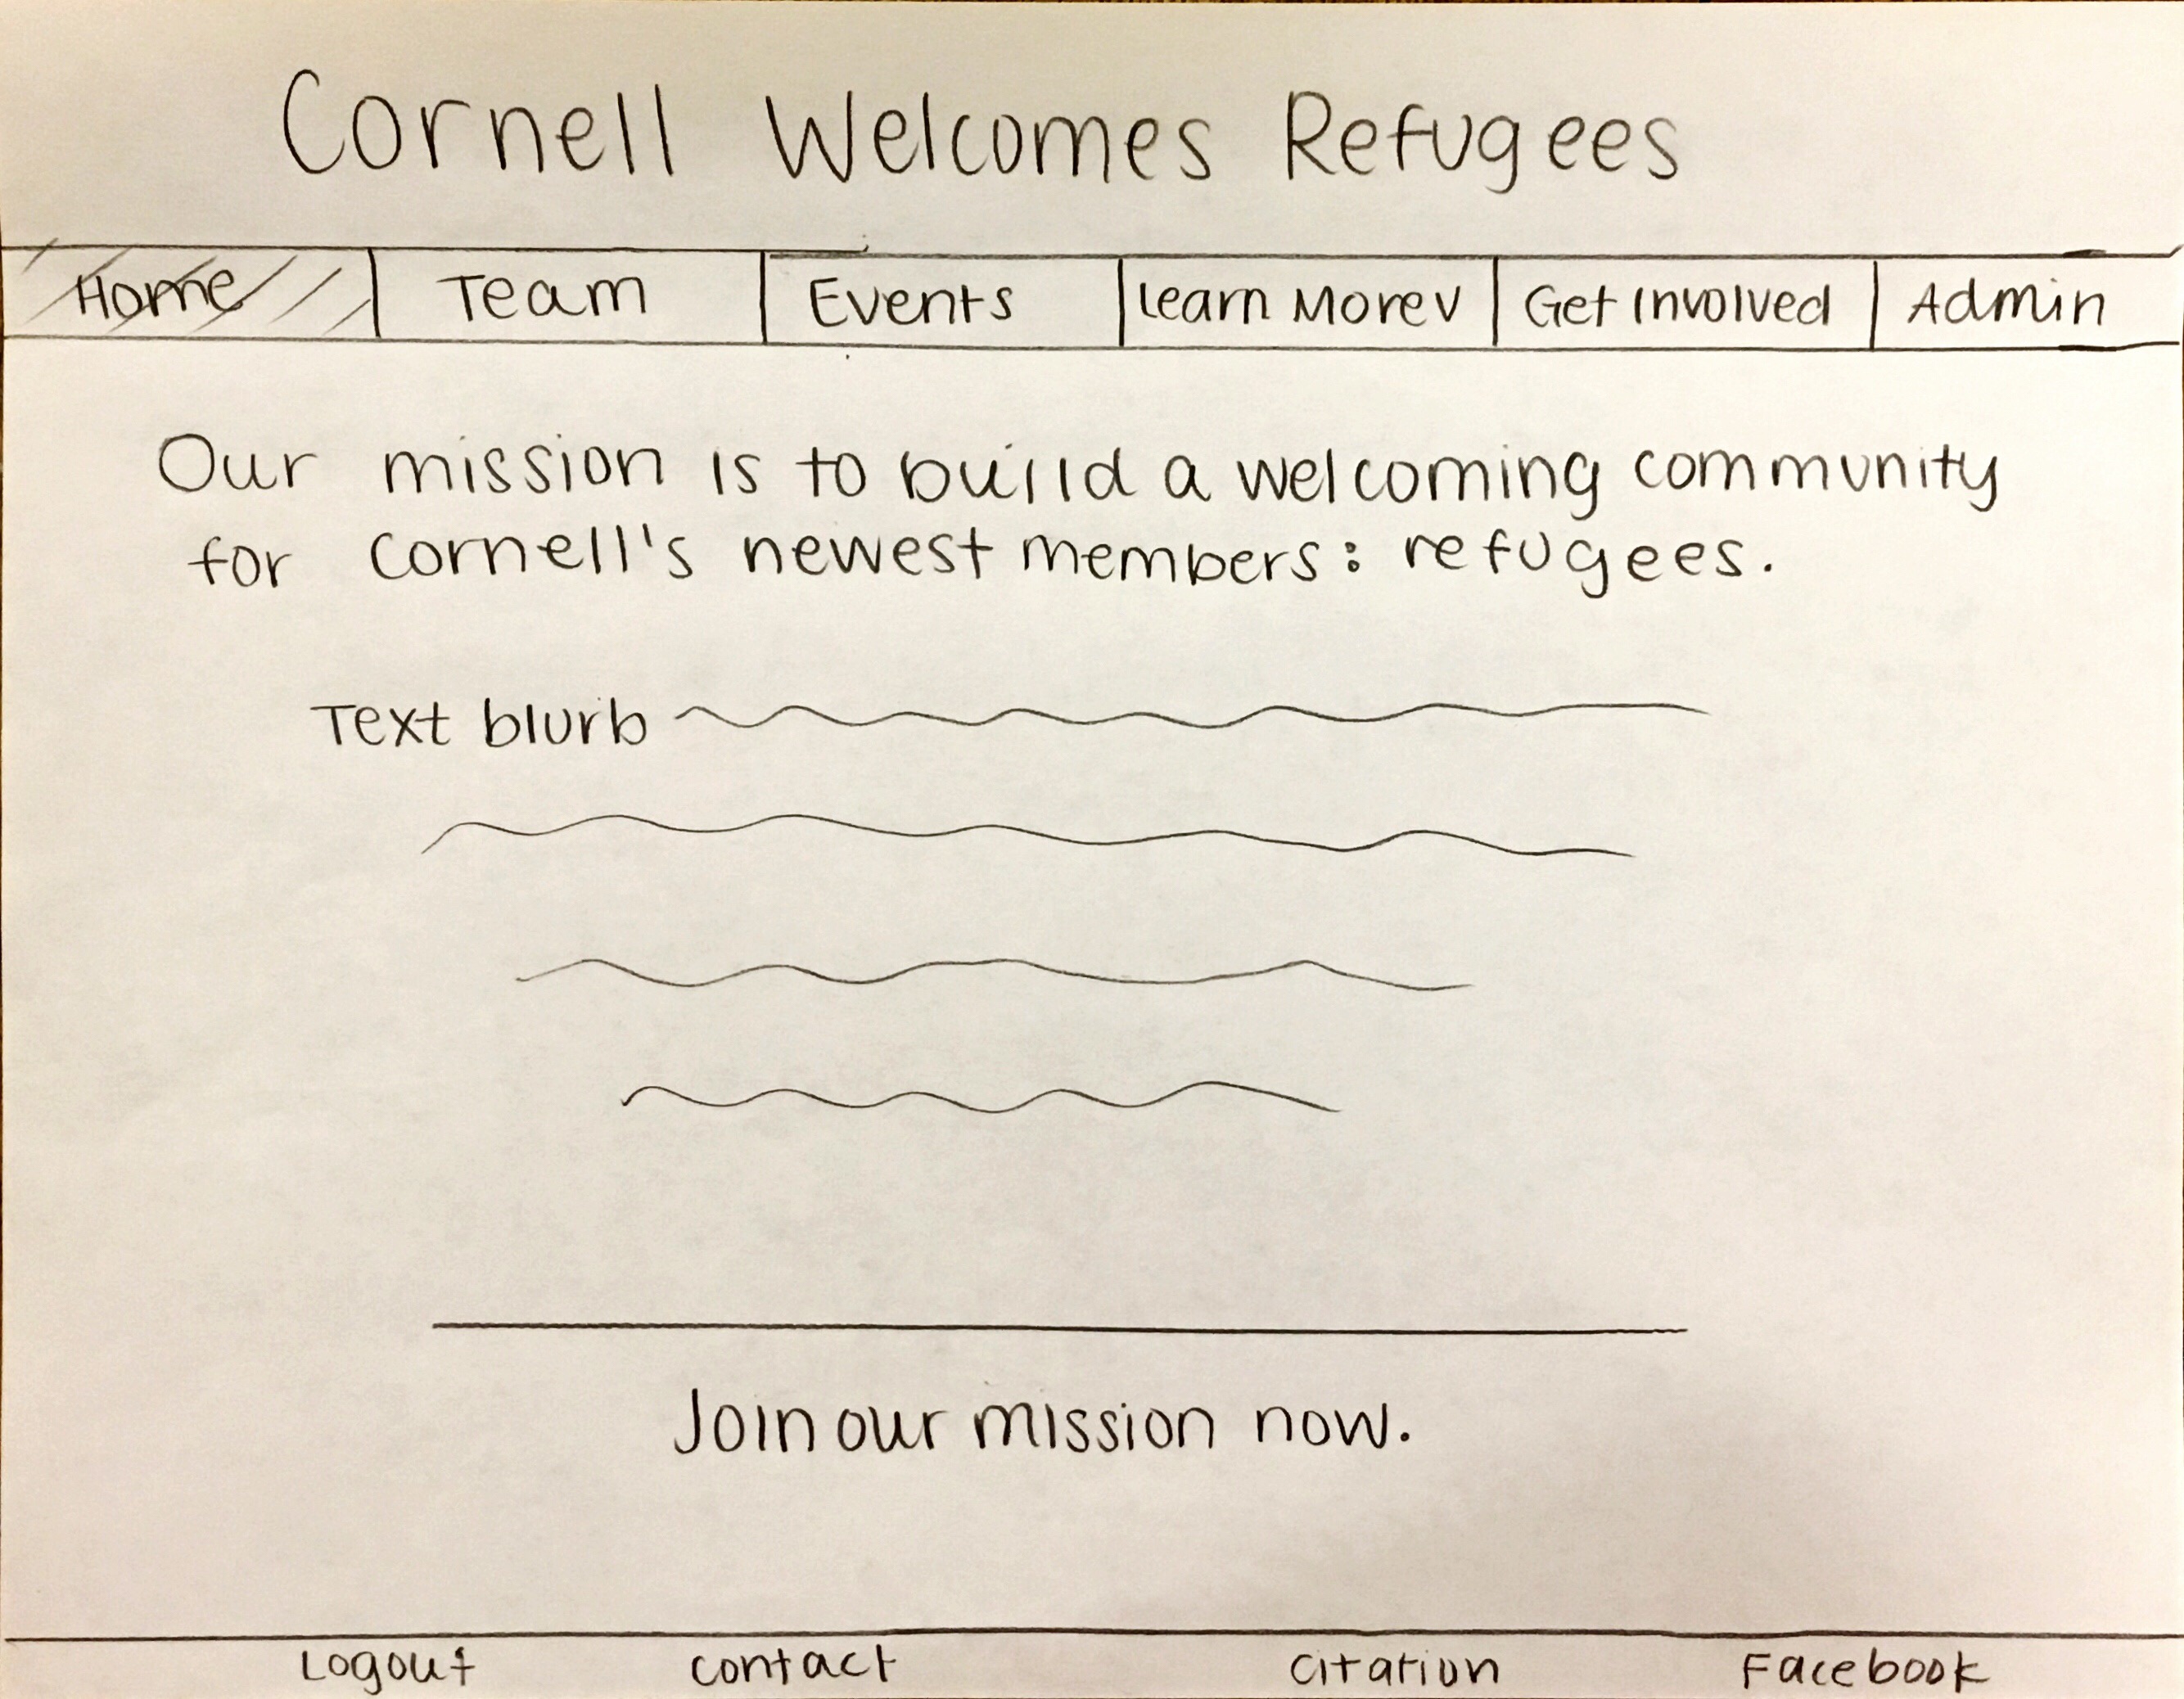 Cornell Welcomes Refugees
Home Team Events Learn More v Get Involved Admin
Our mission is to build a welcoming community
for Cornell's newest members: refugees.
Text blurb
Join our mission now.
Logout Contact Citation Facebook